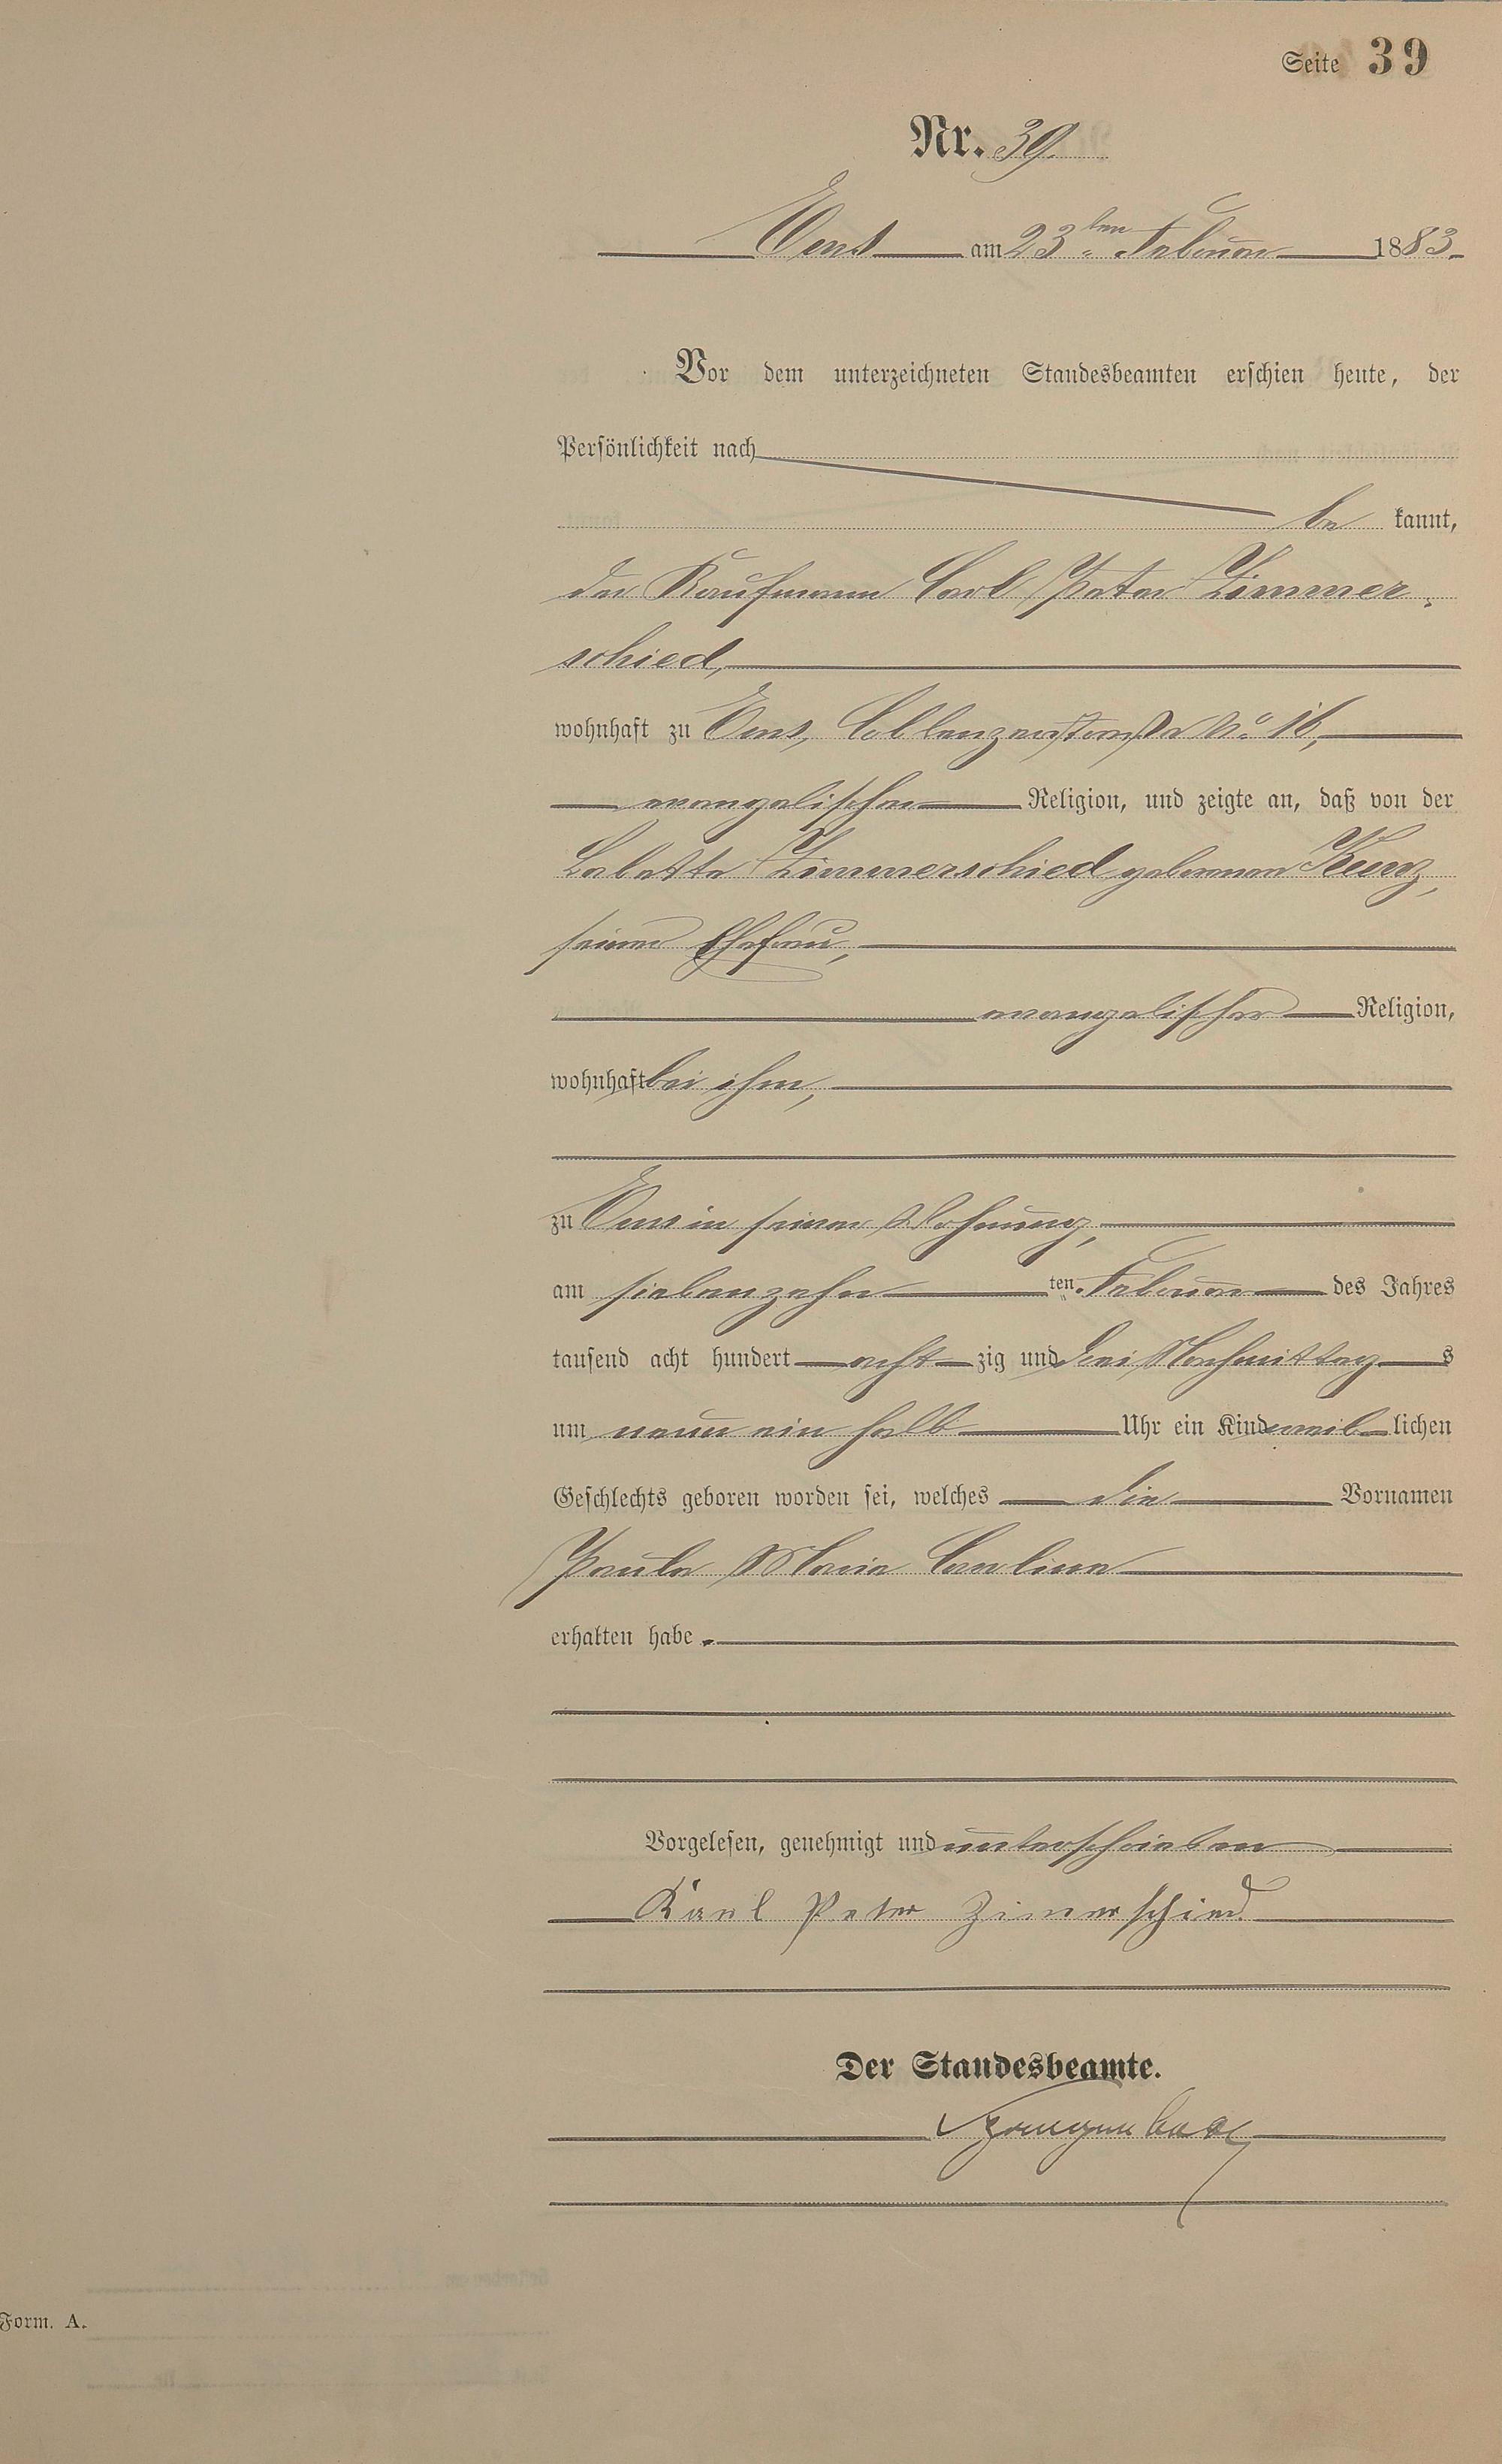 Seite 39
Nr. 39.
Ems am 23ten Februar 1883.
Vor dem unterzeichneten Standesbeamten erschien heute, der
Persönlichkeit nach
be kannt,
der Kaufmann Carl Peter Zimmer-
schied,
wohnhaft zu Ems, Coblenzerstraße No. 16,
evangelischer Religion, und zeigte an, daß von der
Babette Zimmerschied geborenen Kunz,
seiner Ehefrau,
evangelischer Religion,
wohnhaft bei ihm,
zu Ems in seiner Wohnung,
am siebenzehn ten Februar des Jahres
tausend acht hundert acht zig und drei Nachmittag s
um neun ein halb Uhr ein Kind weib lichen
Geschlechts geboren worden sei, welches die Vornamen
Paula Maria Carolina
erhalten habe.
Vorgelesen, genehmigt und unterschrieben
Karl Peter Zimerschied
Der Standesbeamte.
Form. A.